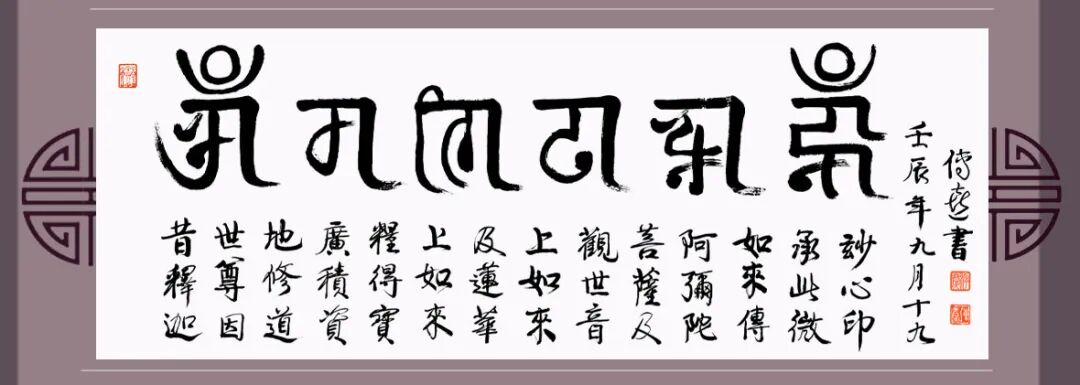 昔釋迦
世尊因
地修道
廣積資
糧得寶
上如來
及蓮華
上如來
觀世音
菩薩及
阿彌陀
如來傳
承此微
玅心印
壬辰年九月十九
傳喜書